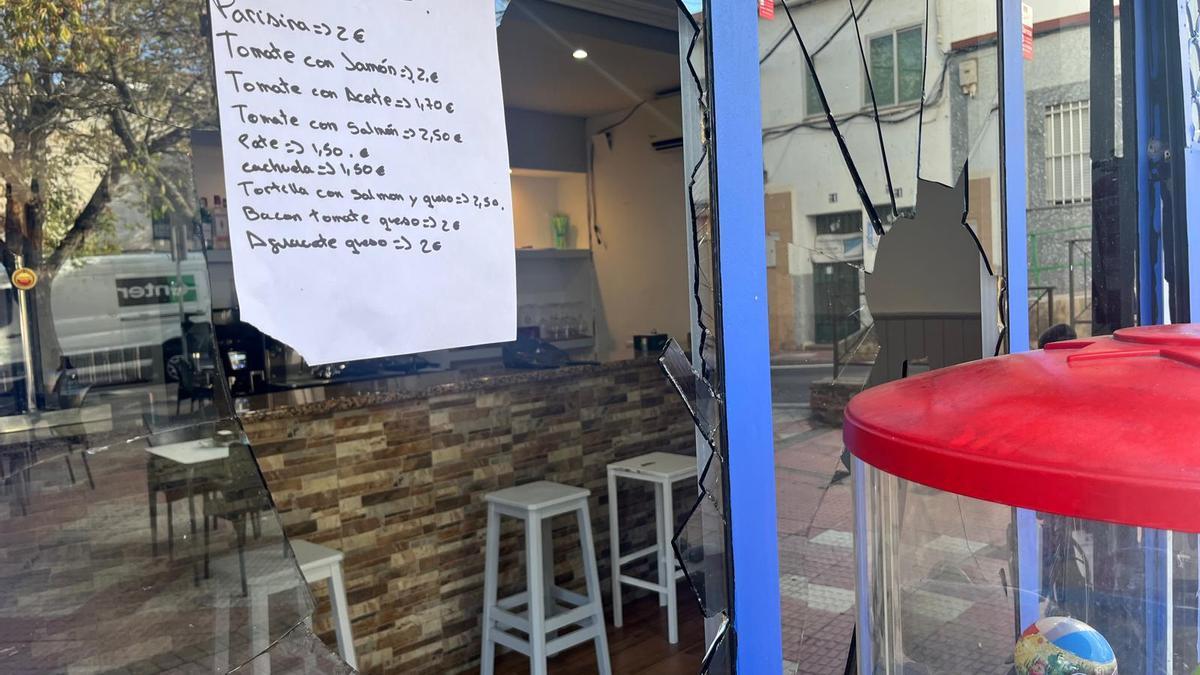 Parisina => 2 €
Tomate con Jamón => 2. €
Tomate con Aceite => 1,70 €
Tomate con salmón => 2,50 €
Pate => 1,50 . €
cachuela => 1,50 €
Tortilla con salmon y queso => 2,50.
Bacon tomate queso => 2 €
Aguacate queso => 2 €
enter